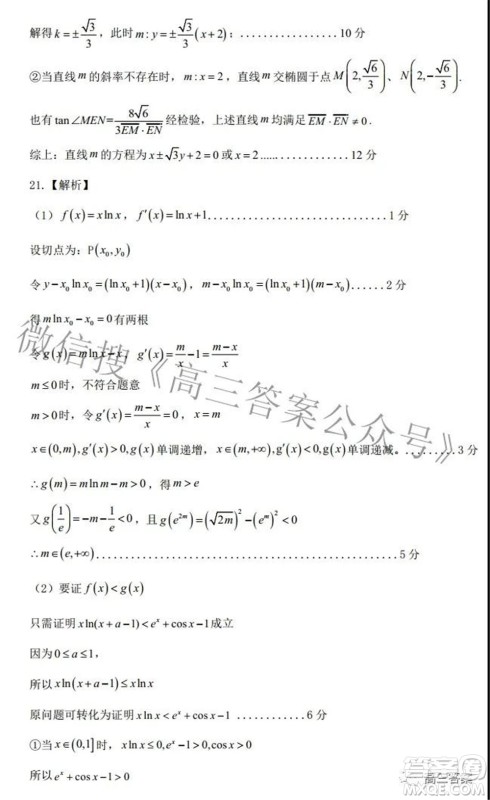 解得k=±√3/3，此时m:y=±√3/3(x+2)：................10分
②当直线m的斜率不存在时，m:x=2，直线m交椭圆于点M(2,√6/3)、N(2,-√6/3).
也有tan∠MEN=8√6/(3EM·EN)经检验，上述直线m均满足EM·EN≠0.
综上：直线m的方程为x±√3y+2=0或x=2......................12分
21.【解析】
（1）f(x)=xlnx，f′(x)=lnx+1..............................1分
设切点为：P(x₀,y₀)
令y-x₀lnx₀=(lnx₀+1)(x-x₀)，m-x₀lnx₀=(lnx₀+1)(m-x₀)......2分
得mlnx₀-x₀=0有两根
令g(x)=mlnx-x，g′(x)=m/x-1=(m-x)/x
m≤0时，不符合题意
m>0时，令g′(x)=(m-x)/x=0，x=m
x∈(0,m),g′(x)>0,g(x)单调递增，x∈(m,+∞),g′(x)<0,g(x)单调递减。..........3分
∴g(m)=mlnm-m>0，得m>e
又g(1/e)=-m-1/e<0，且g(e²ᵐ)=(√2m)²-(eᵐ)²<0
∴m∈(e,+∞)........................................5分
（2）要证f(x)<g(x)
只需证明xln(x+a-1)<eˣ+cosx-1成立
因为0≤a≤1，
所以xln(x+a-1)≤xlnx
原问题可转化为证明xlnx<eˣ+cosx-1............6分
①当x∈(0,1]时，xlnx≤0,eˣ-1>0,cosx>0
所以eˣ+cosx-1>0
微信搜《高三答案公众号》
答案圈
高三答案
MXQE.COM